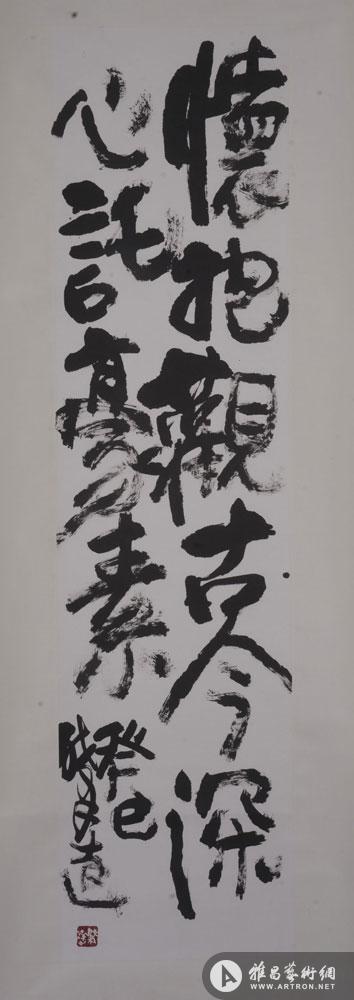 懷抱觀古今深
心託豪素
癸巳
雅昌藝術網
WWW.ARTRON.NET